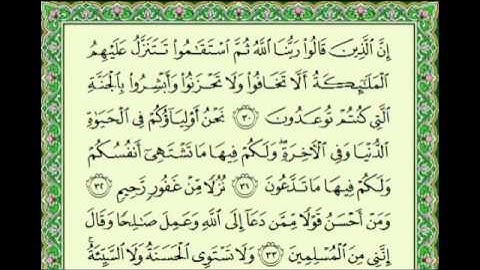 إِنَّ ٱلَّذِينَ قَالُوا۟ رَبُّنَا ٱللَّهُ ثُمَّ ٱسْتَقَـٰمُوا۟ تَتَنَزَّلُ عَلَيْهِمُ
ٱلْمَلَـٰٓئِكَةُ أَلَّا تَخَافُوا۟ وَلَا تَحْزَنُوا۟ وَأَبْشِرُوا۟ بِٱلْجَنَّةِ
ٱلَّتِى كُنتُمْ تُوعَدُونَ ٣٠ نَحْنُ أَوْلِيَآؤُكُمْ فِى ٱلْحَيَوٰةِ
ٱلدُّنْيَا وَفِى ٱلْـَٔاخِرَةِ ۖ وَلَكُمْ فِيهَا مَا تَشْتَهِىٓ أَنفُسُكُمْ
وَلَكُمْ فِيهَا مَا تَدَّعُونَ ٣١ نُزُلًا مِّنْ غَفُورٍ رَّحِيمٍ ٣٢
وَمَنْ أَحْسَنُ قَوْلًا مِّمَّن دَعَآ إِلَى ٱللَّهِ وَعَمِلَ صَـٰلِحًا وَقَالَ
إِنَّنِى مِنَ ٱلْمُسْلِمِينَ ٣٣ وَلَا تَسْتَوِى ٱلْحَسَنَةُ وَلَا ٱلسَّيِّئَةُ ۚ